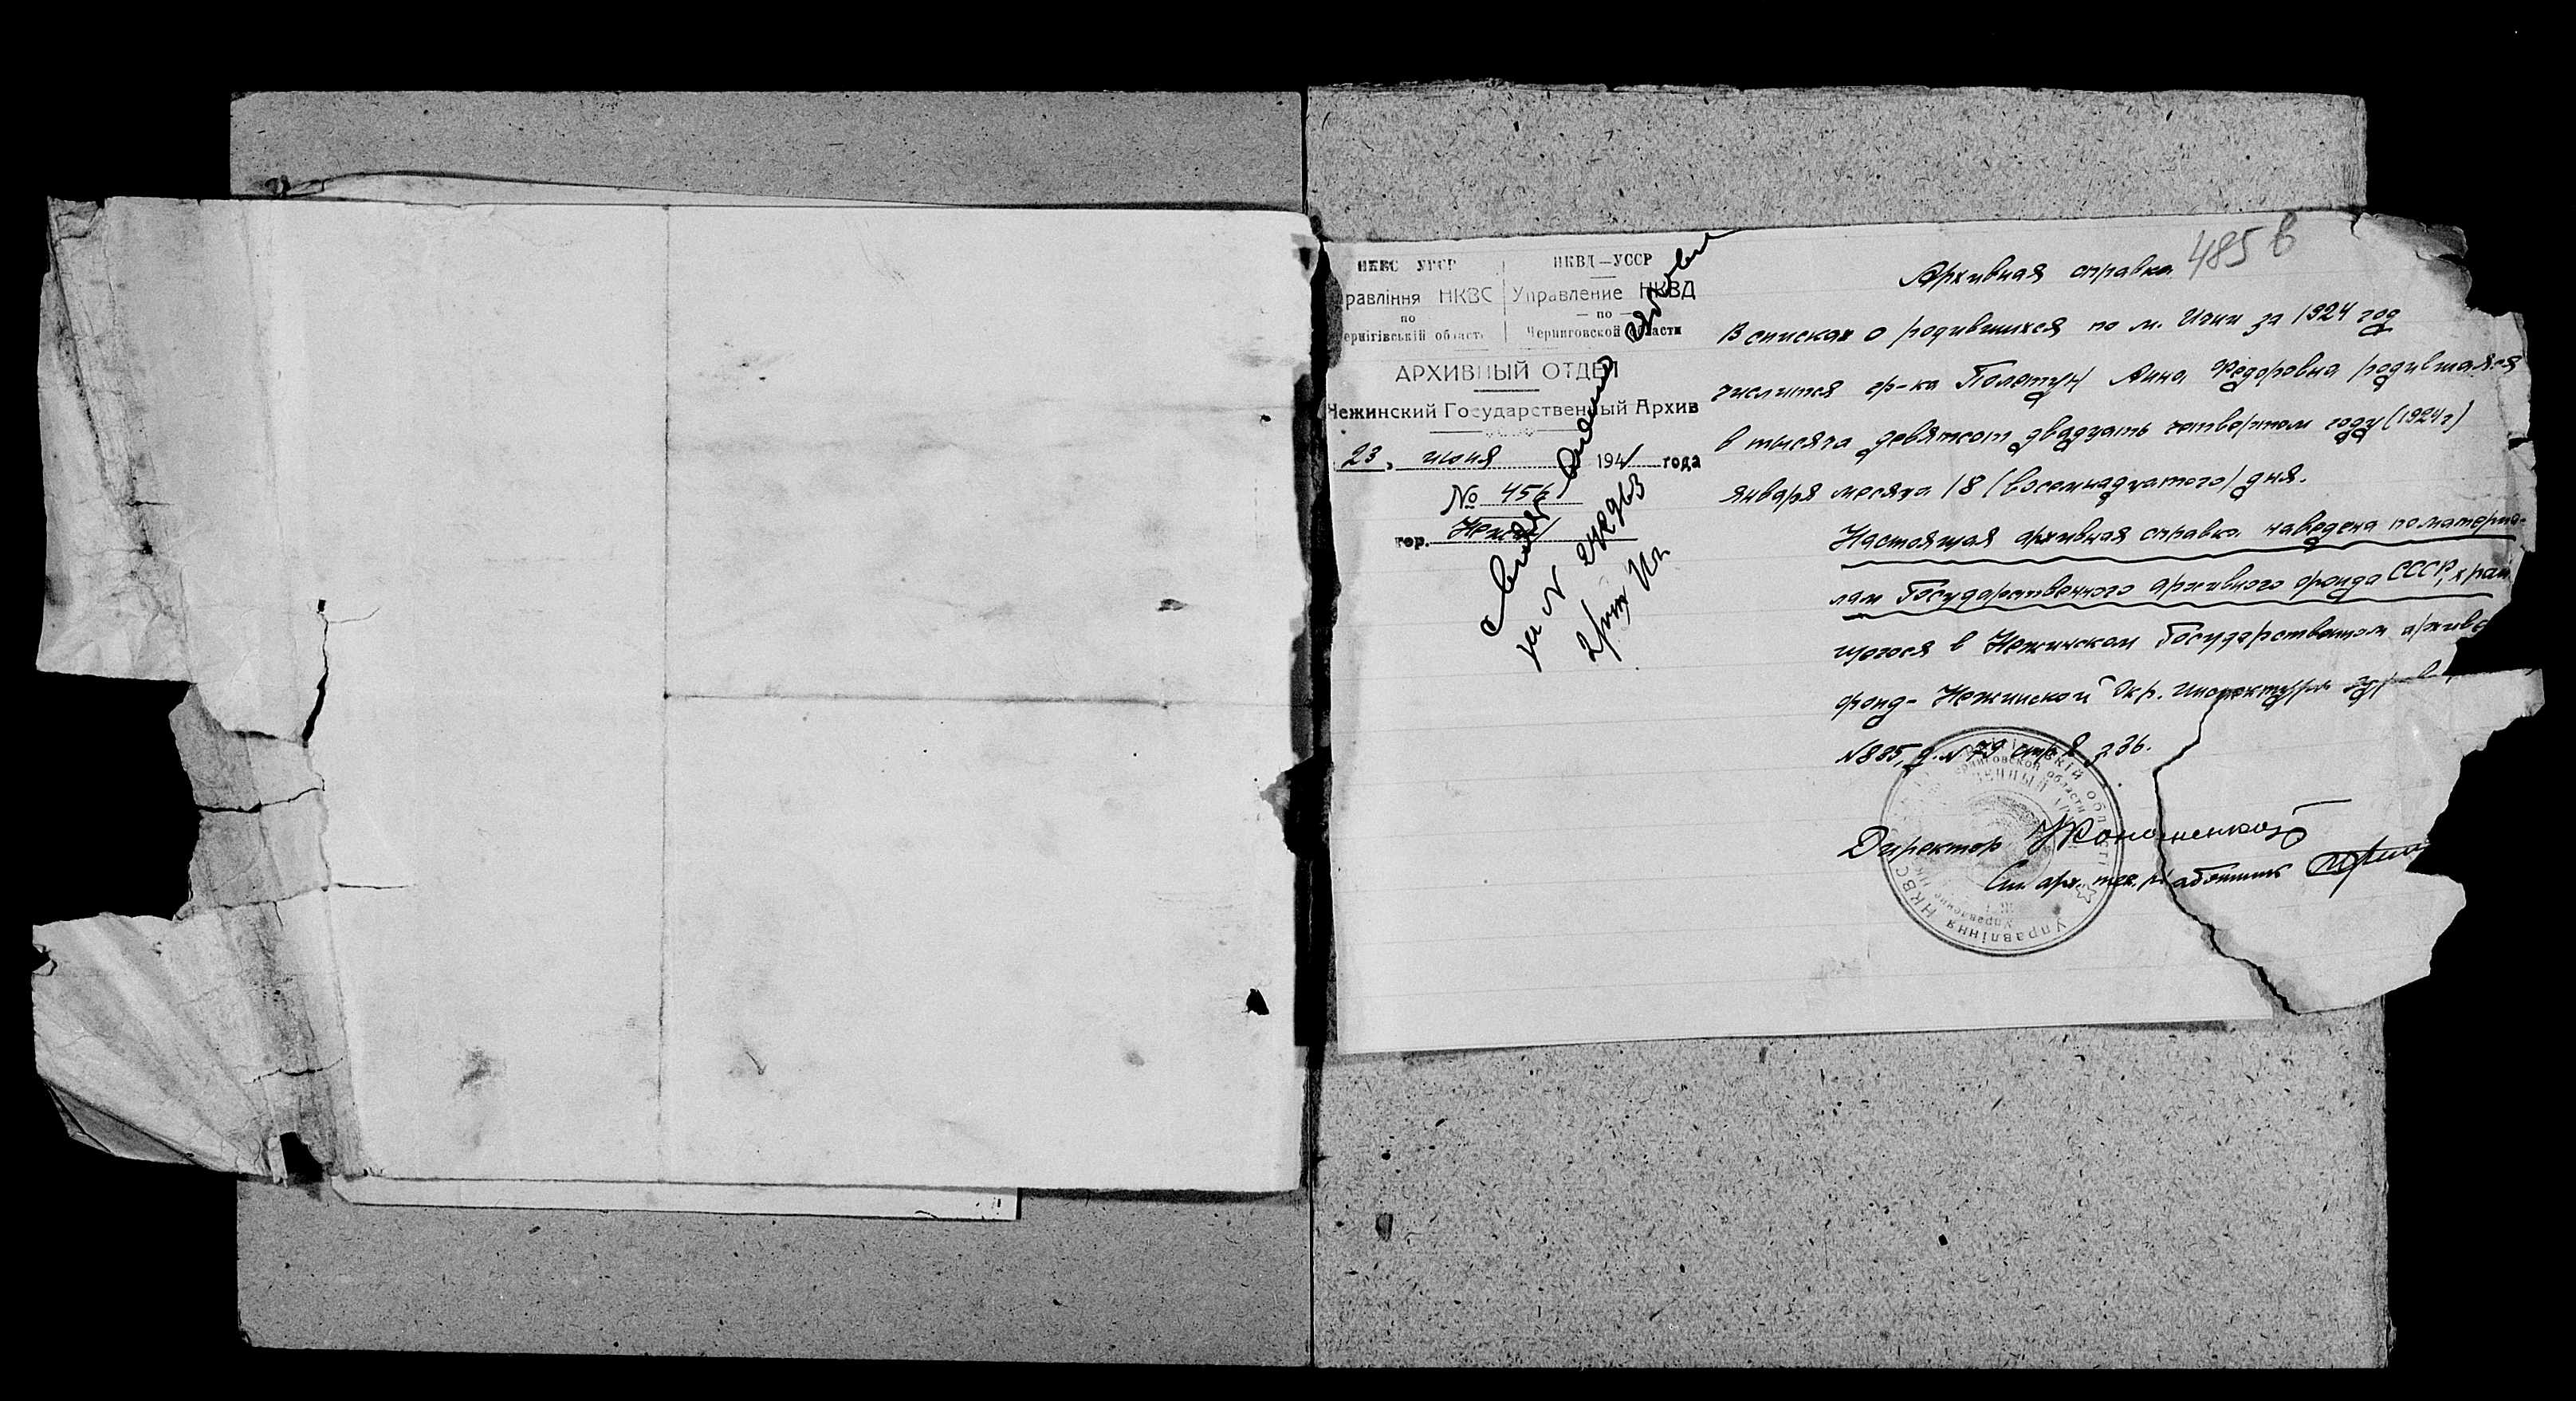 485 в
НКВС УРСР
равління НКВС
по
ернігівській області
НКВД—УССР
Управление НКВД
— по —
Черниговской области
АРХИВНЫЙ ОТДЕЛ
Нежинский Государственный Архив
23, июня 1941 года
№ 456
гор. Нежин
Архивная справка
В списках о родившихся по м. Ични за 1924 год
числится гр-ка Полетун Анна Федоровна родившаяся
в тысяча девятсот двадцать четвертом году (1924 г)
января месяца 18 (восемнадцатого) дня.
Настоящая архивная справка наведена по материа-
лам Государственного архивного фонда СССР, храня
щегося в Нежинском Государственном архиве
фонд - Нежинской Окр. Инспектуры
№ 885, д. № 79 стр. 236.
Директор
Ст. арх. тех. работник
Управління НКВС